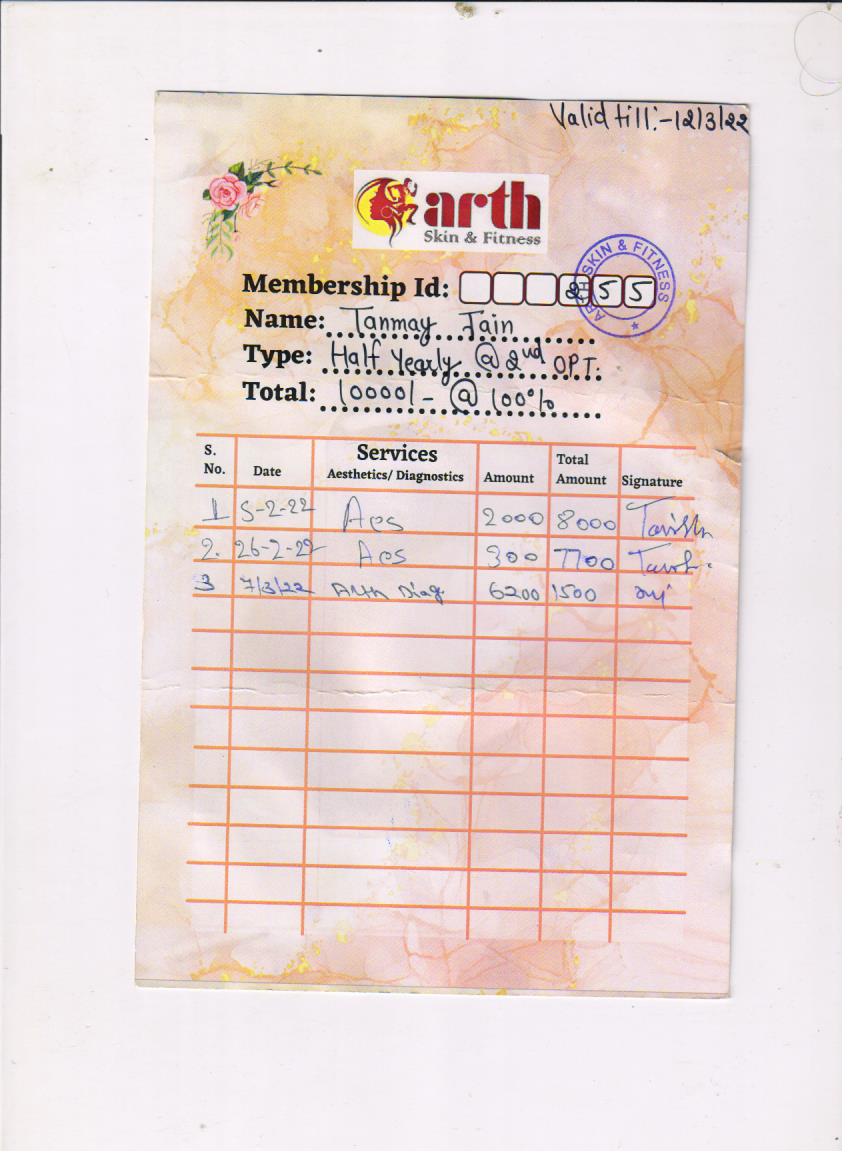 Valid till:-12/3/22
arth
Skin & Fitness
ARTH SKIN & FITNESS
Membership Id: 255
Name: Tanmay Jain
Type: Half Yearly @ 2nd OPT.
Total: 10000/- @ 100%
S. No. Date Services Aesthetics/ Diagnostics Amount Total Amount Signature
1 5-2-22 Aes 2000 8000
2. 26-2-22 Aes 300 7700
3 7/3/22 Arth Diag 6200 1500